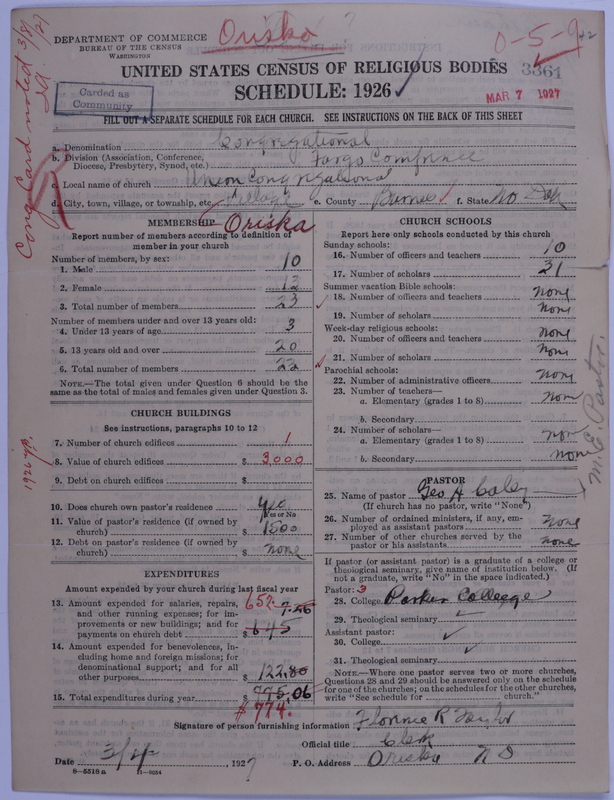 DEPARTMENT OF COMMERCE
BUREAU OF THE CENSUS
WASHINGTON
Oriska ?
0-5-9 42
3361
UNITED STATES CENSUS OF RELIGIOUS BODIES
SCHEDULE: 1926
MAR 7 1927
Carded as
Community
FILL OUT A SEPARATE SCHEDULE FOR EACH CHURCH. SEE INSTRUCTIONS ON THE BACK OF THIS SHEET
Cong Card noted 3/8/27
a. Denomination Congregational
b. Division (Association, Conference,
Diocese, Presbytery, Synod, etc.) Fargo Comfrence
c. Local name of church Union Congregational
d. City, town, village, or township, etc. Village e. County Barnes f. State No. Dak
Oriska
MEMBERSHIP
Report number of members according to definition of
member in your church
Number of members, by sex:
1. Male 10
2. Female 13
3. Total number of members 23
Number of members under and over 13 years old:
4. Under 13 years of age 3
5. 13 years old and over 20
6. Total number of members 23
NOTE.—The total given under Question 6 should be the
same as the total of males and females given under Question 3.
CHURCH BUILDINGS
See instructions, paragraphs 10 to 12
7. Number of church edifices 1
8. Value of church edifices $ 3000
9. Debt on church edifices $
10. Does church own pastor's residence? yes
Yes or No
11. Value of pastor's residence (if owned by
church) $ 1500
12. Debt on pastor's residence (if owned by
church) $ none
EXPENDITURES
Amount expended by your church during last fiscal year
13. Amount expended for salaries, repairs,
and other running expenses; for im-
provements or new buildings; and for
payments on church debt $ 645
652.
14. Amount expended for benevolences, in-
cluding home and foreign missions; for
denominational support; and for all
other purposes $ 122.80
15. Total expenditures during year $ 775.06
$ 774.
CHURCH SCHOOLS
Report here only schools conducted by this church
Sunday schools:
16. Number of officers and teachers 10
17. Number of scholars 31
Summer vacation Bible schools:
18. Number of officers and teachers none
19. Number of scholars none
Week-day religious schools:
20. Number of officers and teachers none
21. Number of scholars none
Parochial schools:
22. Number of administrative officers none
23. Number of teachers—
a. Elementary (grades 1 to 8) non
b. Secondary
24. Number of scholars—
a. Elementary (grades 1 to 8) non
b. Secondary non
M.E. Pastor.
PASTOR
25. Name of pastor Geo H Coley
(If church has no pastor, write "None")
26. Number of ordained ministers, if any, em-
ployed as assistant pastors none
27. Number of other churches served by the
pastor or his assistants none
If pastor (or assistant pastor) is a graduate of a college or
theological seminary, give name of institution below. (If
not a graduate, write "No" in the space indicated.)
Pastor: 3
28. College Parker Colleege
29. Theological seminary
Assistant pastor:
30. College
31. Theological seminary
NOTE.—Where one pastor serves two or more churches,
Questions 28 and 29 should be answered only on the schedule
for one of the churches; on the schedules for the other churches,
write "See schedule for church."
Signature of person furnishing information Flonnie R Taylor
Official title Clerk
Date 3/4, 1927 P. O. Address Oriska N D
8—5518a 11—9034